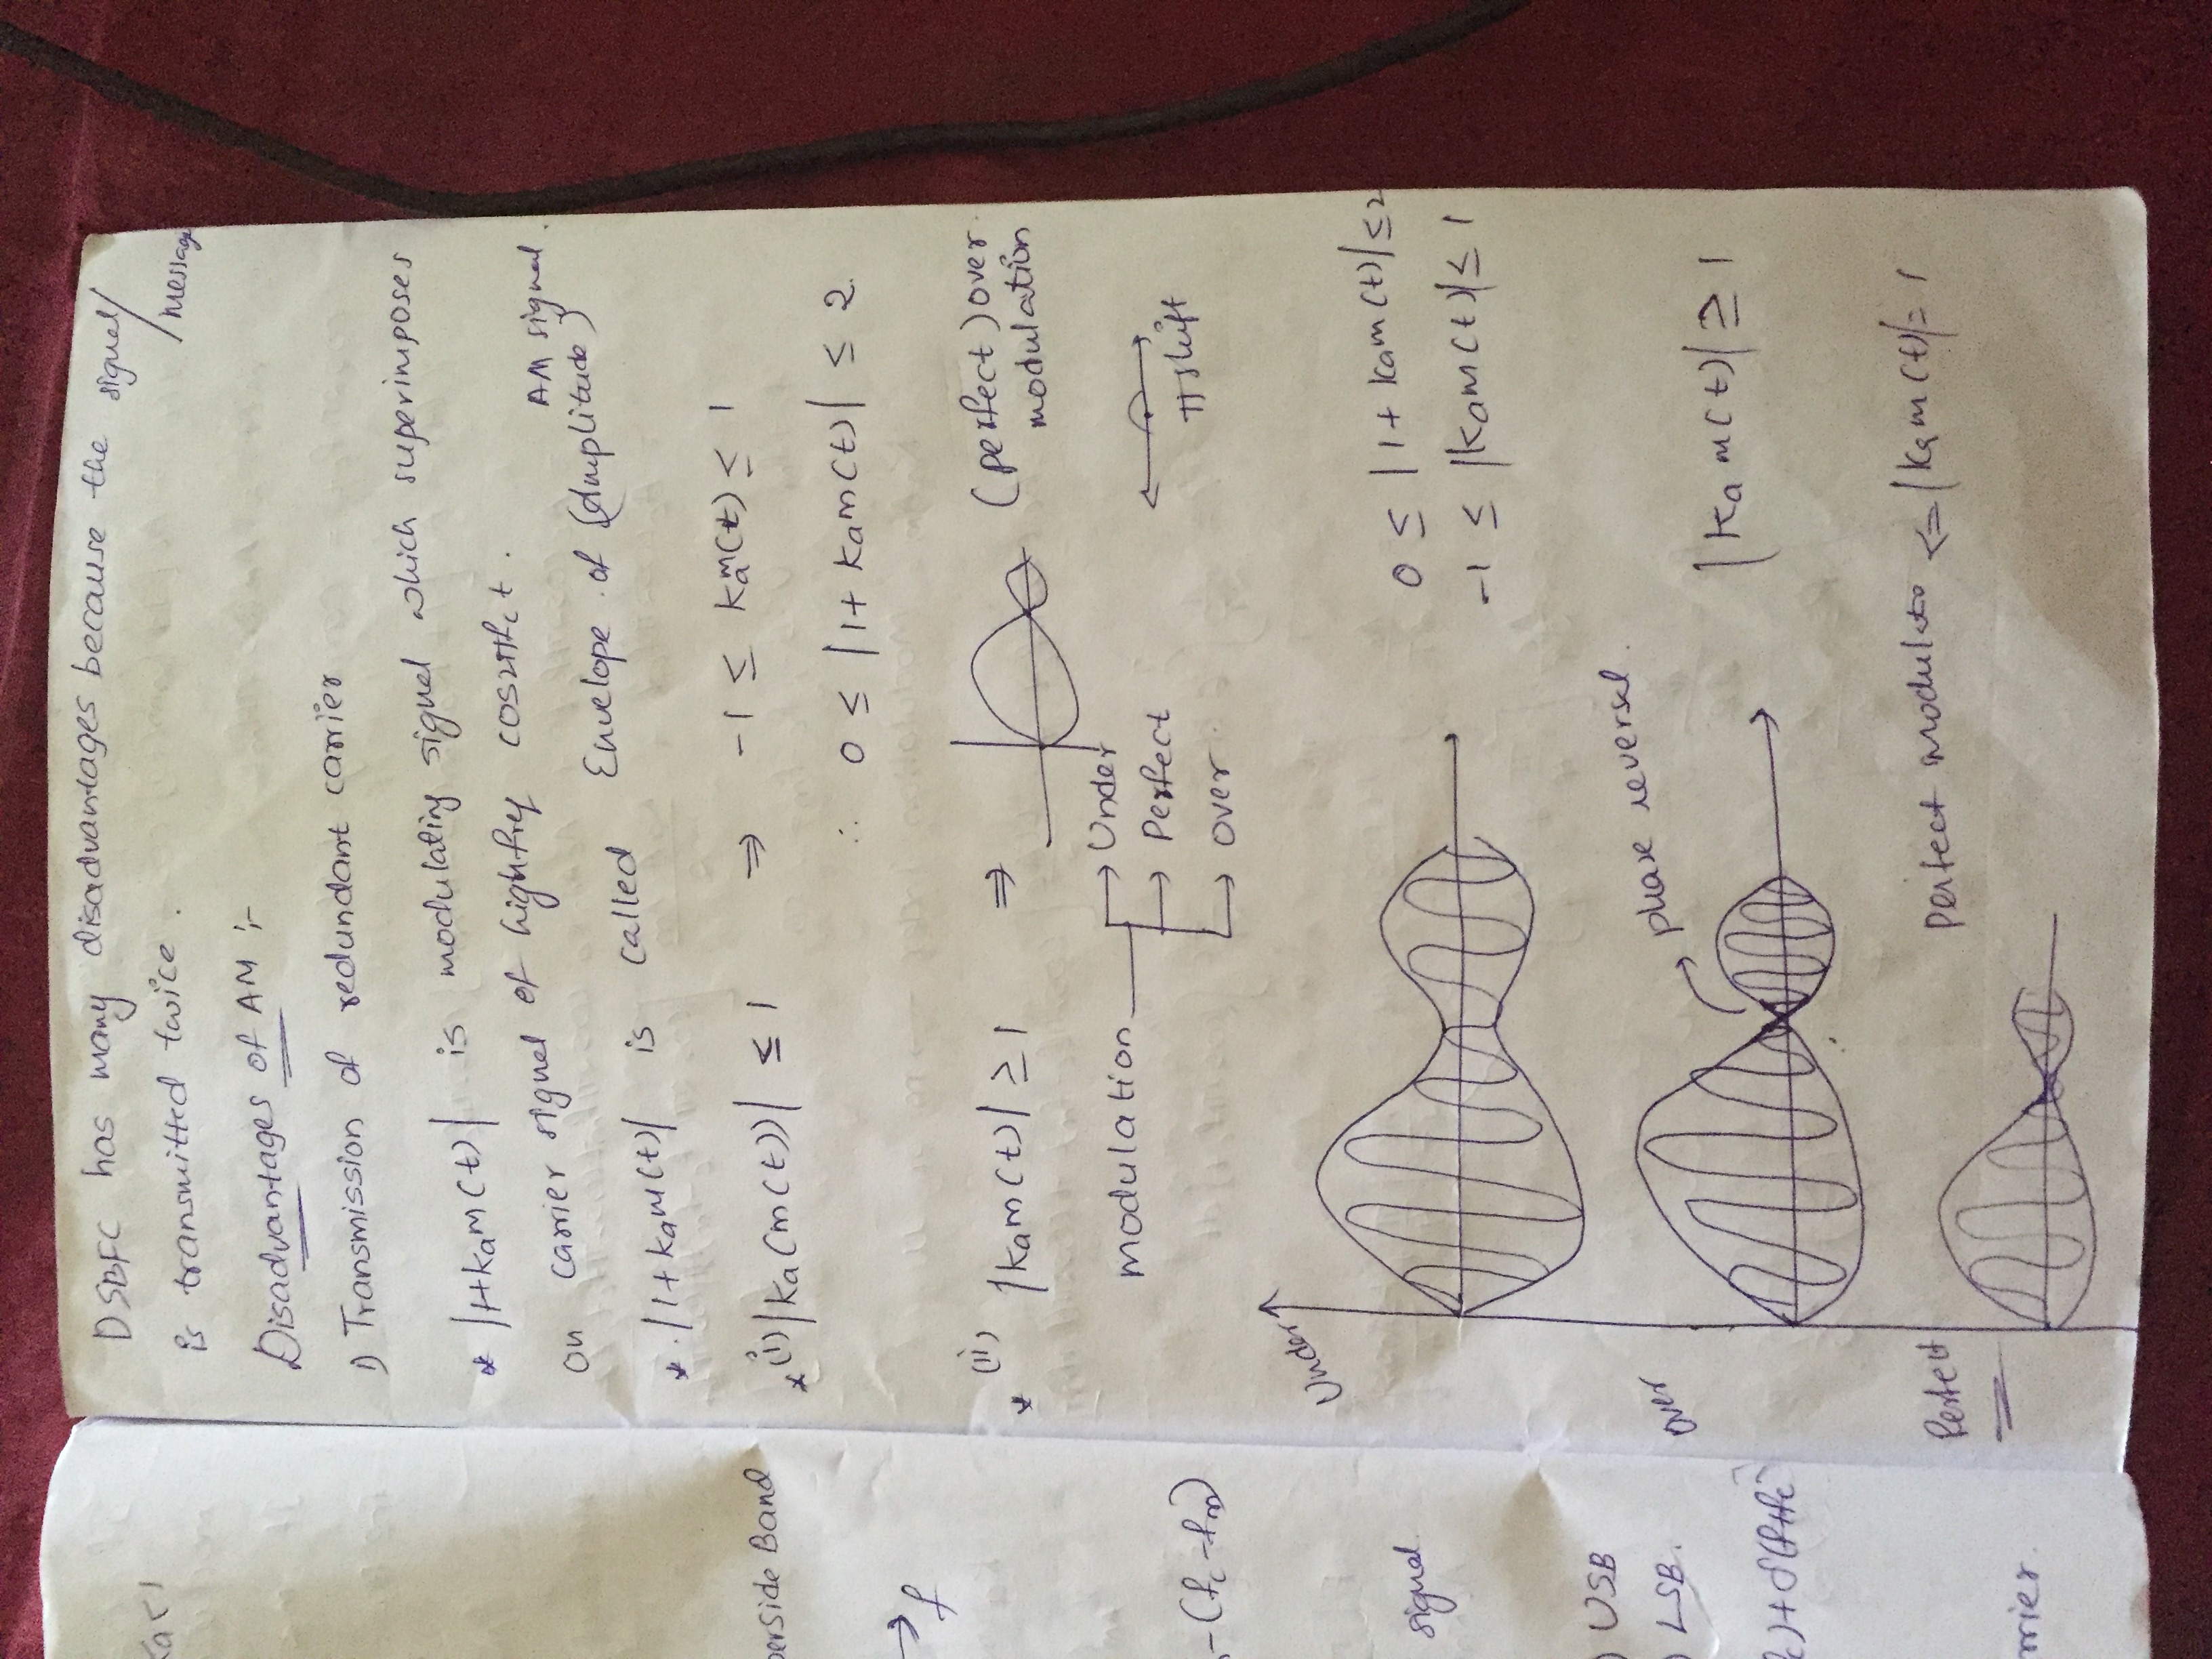 Ka<1
perside Band
→f
-(fc-fm)
signal.
) USB
) LSB.
fc)+δ(f+fc
rrier.
DSBFC has many disadvantages because the signal/
message
is transmitted twice.
Disadvantages of AM :-
1) Transmission of redundant carrier
* |1+kam(t)| is modulating signal which superimposes
on carrier signal of high freq cos2πfct.
AM signal.
* . |1+kam(t)| is called Envelope of (Amplitude)
* (i) |ka(m(t))| ≤ 1 ⇒ -1 ≤ kam(t) ≤ 1
∴ 0 ≤ |1+kam(t)| ≤ 2.
* (ii) |kam(t)| ≥ 1 ⇒ (perfect) over
modulation
modulation → Under
→ Perfect
→ over
π shift
Under
0 ≤ |1+kam(t)| ≤ 2
-1 ≤ |kam(t)| ≤ 1
over
phase reversal.
|kam(t)| ≥ 1
Perfect
Perfect modulato <= |kam(t)| = 1